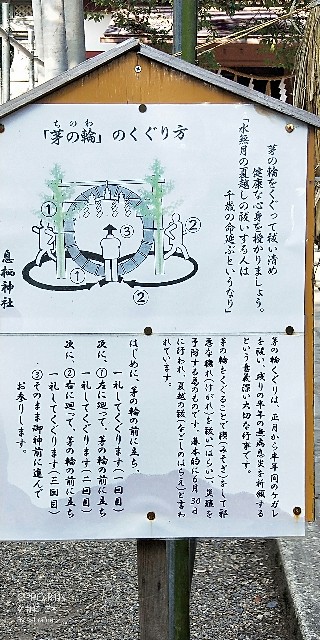 ちのわ
「茅の輪」のくぐり方
茅の輪をくぐって祓い清め
健康な心身を授かりましょう。
「水無月の夏越しの祓いする人は
千歳の命延ぶというなり」
①
②
③
①
②
息栖神社
茅の輪くぐりは、正月から半年間のケガレ
を祓い、残りの半年の無病息災を祈願する
という意義深い大切な行事です。
茅の輪をくぐることで禊(みそぎ)をして軽
悪な穢れ(けがれ)を祓い(はらい)、災難を
予防する為のものです。基本的に6月30日
に行われ、夏越の祓(なごしのはらえ)と言わ
れています。
はじめに、茅の輪の前に立ち、
一礼してくぐります(一回目)
次に、①左に廻って、茅の輪の前に立ち
一礼してくぐります(二回目)
次に、②右に廻って、茅の輪の前に立ち
一礼してくぐります(三回目)
③そのまま御神前に進んで
お参りします。